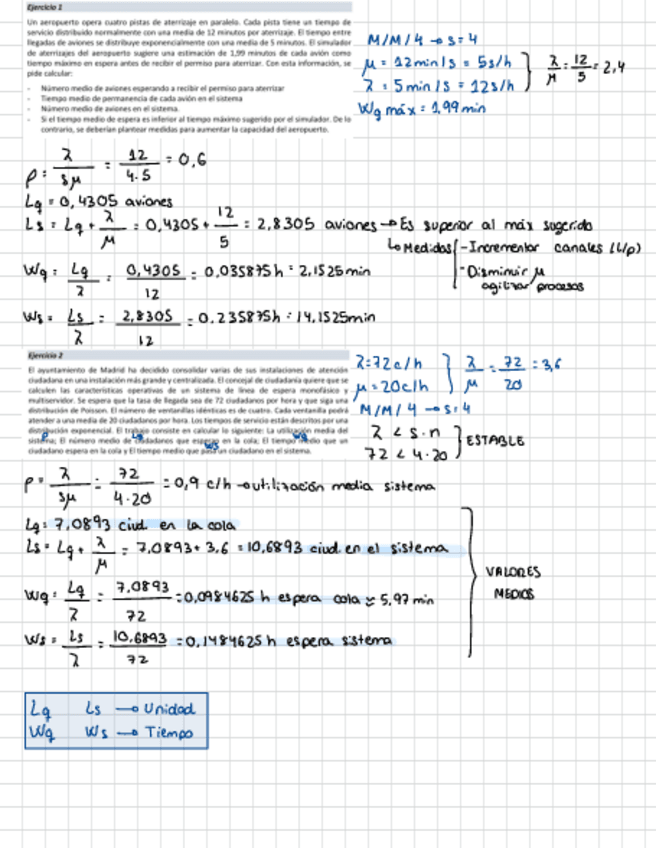 Ejercicio 1
Un aeropuerto opera cuatro pistas de aterrizaje en paralelo. Cada pista tiene un tiempo de
servicio distribuido normalmente con una media de 12 minutos por aterrizaje. El tiempo entre
llegadas de aviones se distribuye exponencialmente con una media de 5 minutos. El simulador
de aterrizajes del aeropuerto sugiere una estimación de 1,99 minutos de cada avión como
tiempo máximo en espera antes de recibir el permiso para aterrizar. Con esta información, se
pide calcular:
- Número medio de aviones esperando a recibir el permiso para aterrizar
- Tiempo medio de permanencia de cada avión en el sistema
- Número medio de aviones en el sistema.
- Si el tiempo medio de espera es inferior al tiempo máximo sugerido por el simulador. De lo
contrario, se deberían plantear medidas para aumentar la capacidad del aeropuerto.
M/M/4 → s=4
μ = 12min/s = 5s/h
λ = 5min/s = 12s/h
λ/μ = 12/5 = 2,4
Wq máx = 1,99 min
ρ = λ/sμ = 12/4·5 = 0,6
Lq = 0,4305 aviones
Ls = Lq + λ/μ = 0,4305 + 12/5 = 2,8305 aviones → Es superior al máx sugerido
↳ Medidas - Incrementar canales (↓ρ)
- Disminuir μ
agilizar procesos
Wq = Lq/λ = 0,4305/12 = 0,035875h = 2,1525min
Ws = Ls/λ = 2,8305/12 = 0,235875h = 14,1525min
Ejercicio 2
El ayuntamiento de Madrid ha decidido consolidar varias de sus instalaciones de atención
ciudadana en una instalación más grande y centralizada. El concejal de ciudadanía quiere que se
calculen las características operativas de un sistema de línea de espera monofásico y
multiservidor. Se espera que la tasa de llegada sea de 72 ciudadanos por hora y que siga una
distribución de Poisson. El número de ventanillas idénticas es de cuatro. Cada ventanilla podrá
atender a una media de 20 ciudadanos por hora. Los tiempos de servicio están descritos por una
distribución exponencial. El trabajo consiste en calcular lo siguiente: La utilización media del
sistema; El número medio de ciudadanos que esperan en la cola; El tiempo medio que un
ciudadano espera en la cola y El tiempo medio que pasa un ciudadano en el sistema.
ρ Lq Wq
Ws
λ=72c/h
μ=20c/h
λ/μ = 72/20 = 3,6
M/M/4 → s=4
λ < s·n
72 < 4·20
ESTABLE
ρ = λ/sμ = 72/4·20 = 0,9 c/h → utilización media sistema
Lq = 7,0893 ciud. en la cola
Ls = Lq + λ/μ = 7,0893 + 3,6 = 10,6893 ciud. en el sistema
Wq = Lq/λ = 7,0893/72 = 0,0984625 h espera cola ≈ 5,97 min
Ws = Ls/λ = 10,6893/72 = 0,1484625 h espera sistema
VALORES
MEDIOS
Lq Ls → Unidad
Wq Ws → Tiempo